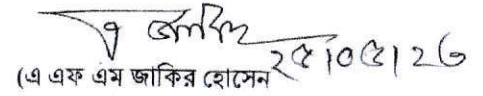 ২৫|০৫|২৬
(এ এফ এম জাকির হোসেন